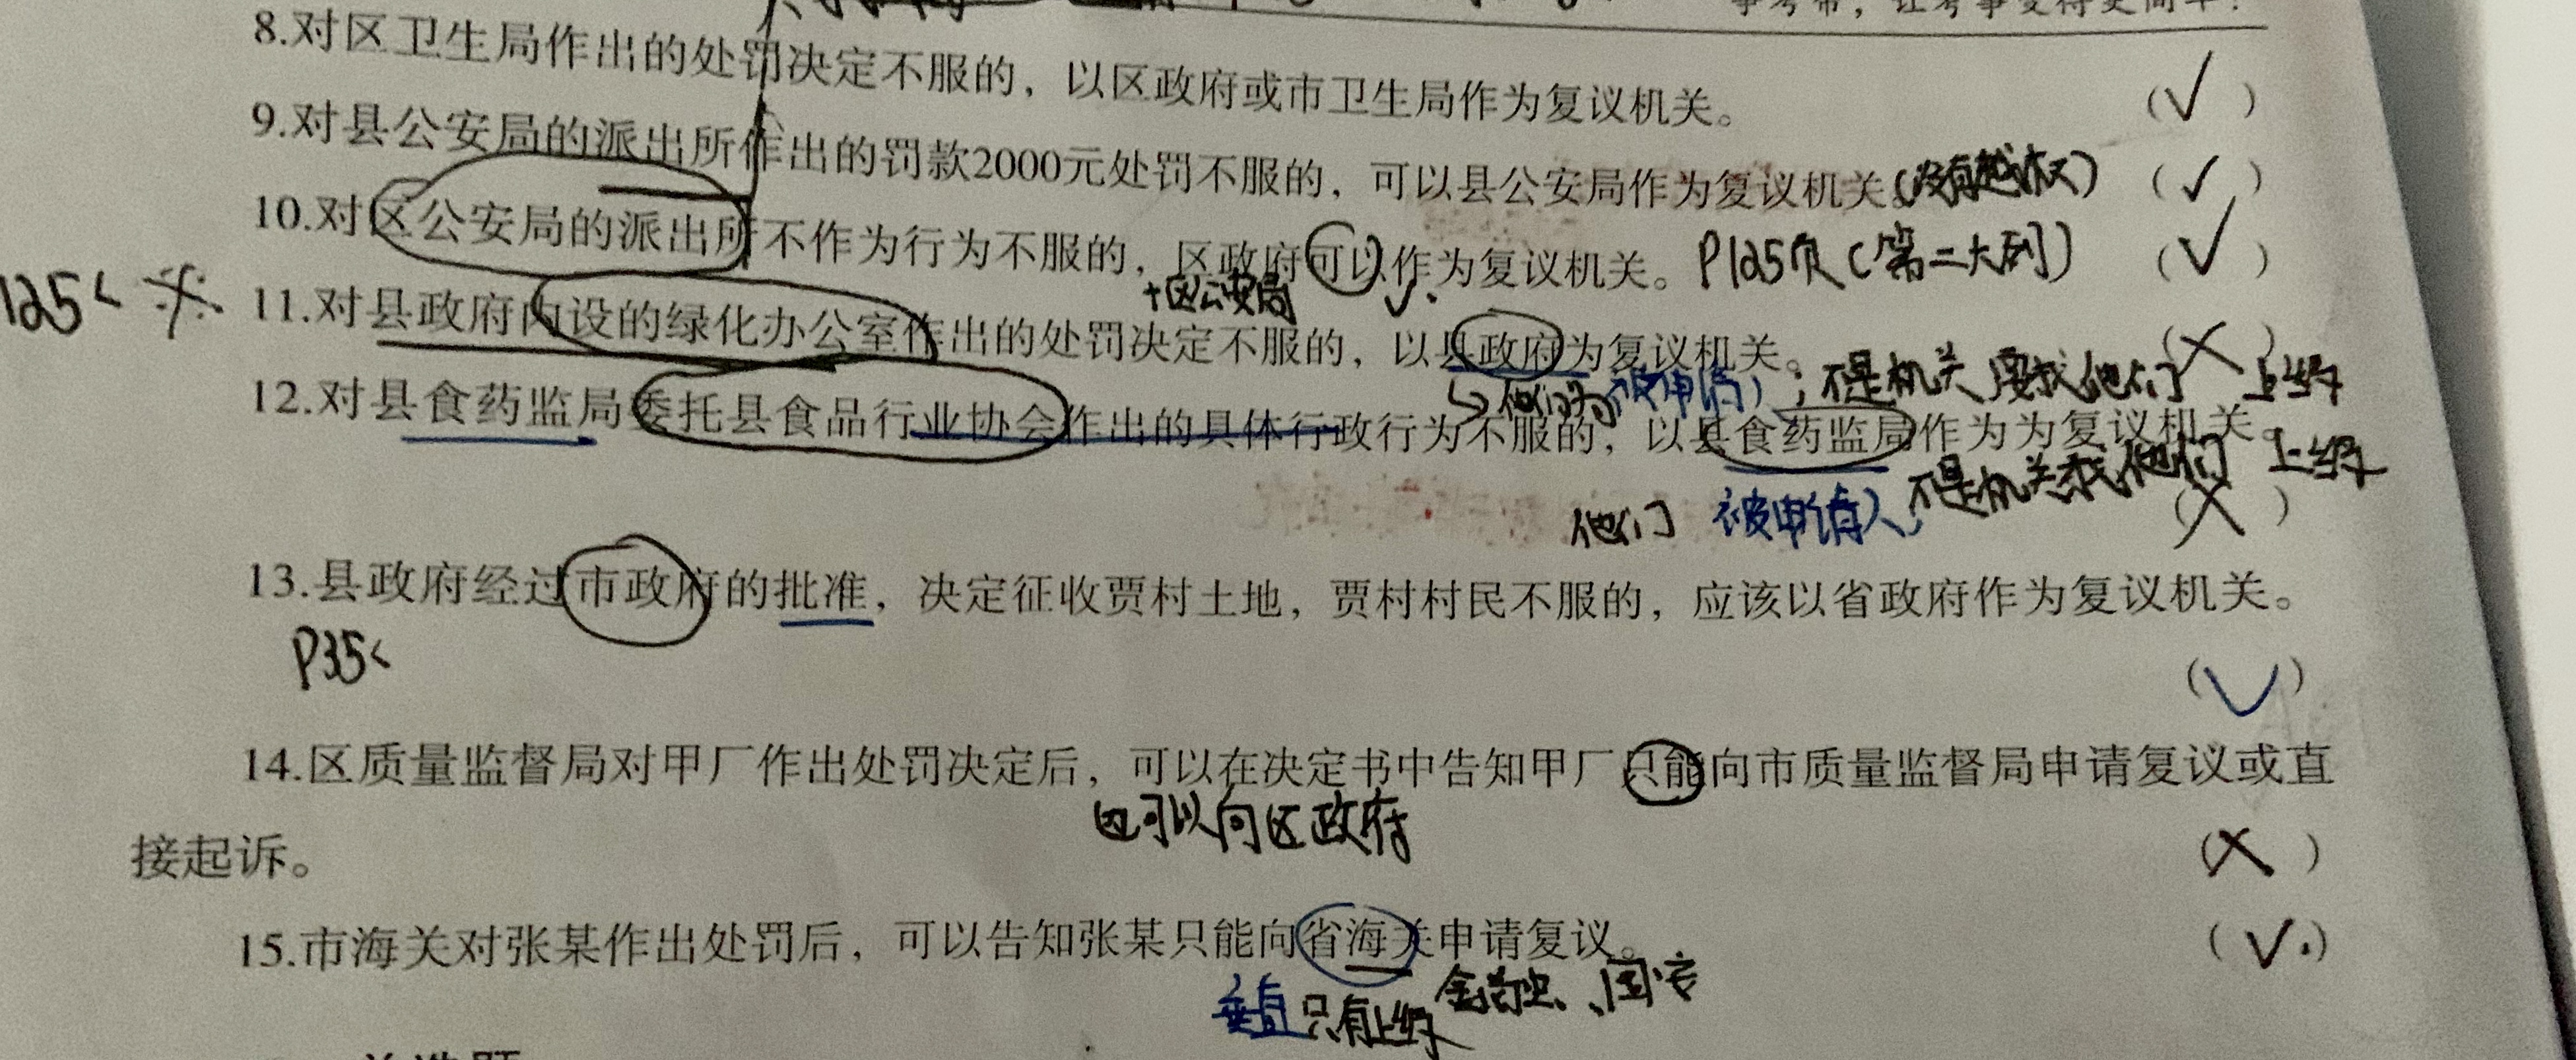 8.对区卫生局作出的处罚决定不服的，以区政府或市卫生局作为复议机关。 (✓)
9.对县公安局的派出所作出的罚款2000元处罚不服的，可以县公安局作为复议机关。(没有越权) (✓)
10.对区公安局的派出所不作为行为不服的，区政府可以作为复议机关。 P125页(第二大列) (✓)
+区公安局 ✓.
125< ※ 11.对县政府内设的绿化办公室作出的处罚决定不服的，以县政府为复议机关。 (×)
他们为被申请人；不是机关 要找他们上级
12.对县食药监局委托县食品行业协会作出的具体行政行为不服的，以县食药监局作为为复议机关。
他们 被申请人，不是机关找他们 上级 (×)
13.县政府经过市政府的批准，决定征收贾村土地，贾村村民不服的，应该以省政府作为复议机关。
P35< (✓)
14.区质量监督局对甲厂作出处罚决定后，可以在决定书中告知甲厂只能向市质量监督局申请复议或直
也可以向区政府
接起诉。 (×)
15.市海关对张某作出处罚后，可以告知张某只能向省海关申请复议。 (✓.)
垂直只有上级 、国安